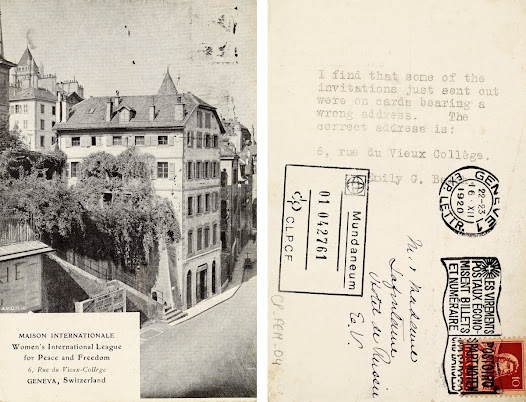 MAISON INTERNATIONALE
Women's International League
for Peace and Freedom
6, Rue du Vieux-Collège
GENEVA, Switzerland
I find that some of the
invitations just sent out
were on cards bearing a
wrong address. The
correct address is:
6, rue du Vieux Collège.
Emily G.
Mundaneum
01 042761
CLPCF
CP.FEM.04
M. & Madame
Lafontaine
Hotel de Russie
E. V.
GENÈVE 1
22-23
16.XII
1920
EXP. LETTR.
LES VIREMENTS
POSTAUX ÉCONO-
MISENT BILLETS
ET NUMÉRAIRE
10